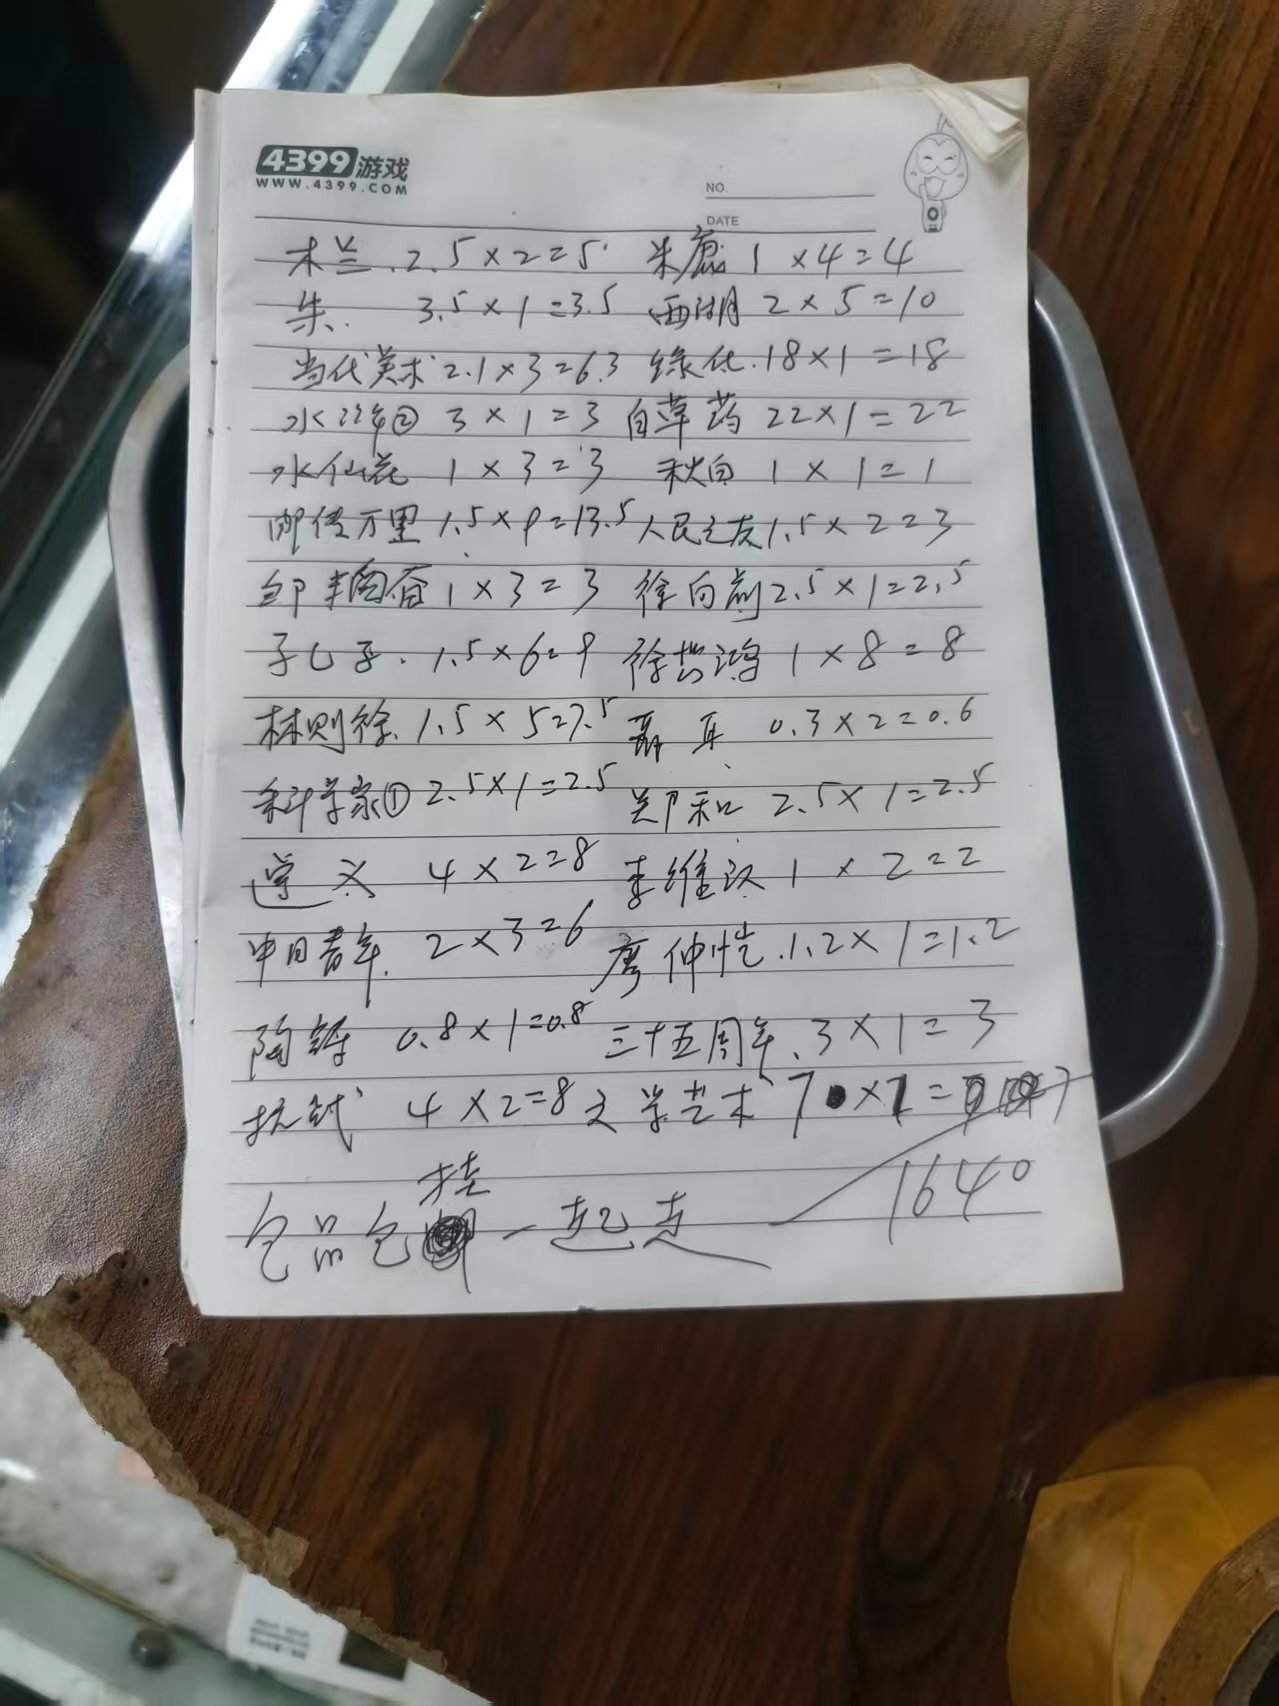 4399游戏
WWW.4399.COM
NO.
DATE
木兰.2.5×2=5 朱庼 1×4=4
朱. 3.5×1=3.5 西湖 2×5=10
当代美术 2.1×3=6.3 绿化.18×1=18
水浒② 3×1=3 白草药 22×1=22
水仙花 1×3=3 秋白 1×1=1
邮传万里 1.5×9=13.5 人民之友 1.5×2=3
邹韬奋 1×3=3 徐向前 2.5×1=2.5
孑乚孑. 1.5×6=9 徐悲鸿 1×8=8
林则徐. 1.5×5=7.5 聂耳 0.3×2=0.6
科学家① 2.5×1=2.5 郑和 2.5×1=2.5
遵义 4×2=8 李维汉 1×2=2
中日青年. 2×3=6 廖仲恺.1.2×1=1.2
陶铸 0.8×1=0.8 三十五周年.3×1=3
抗战 4×2=8 文学艺术 7×1=7
挂
包品包 一起走 1640